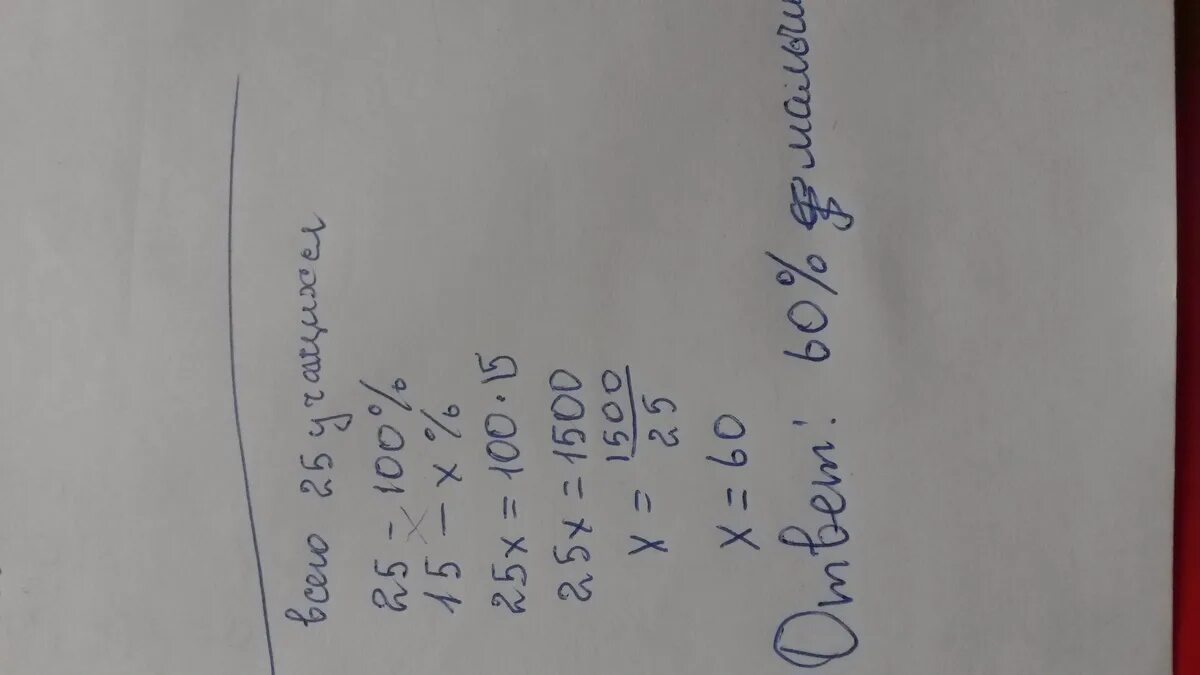 всего 25 учащихся
25 – 100%
15 – x %
25x = 100·15
25x = 1500
x = 1500/25
x = 60
Ответ: 60%